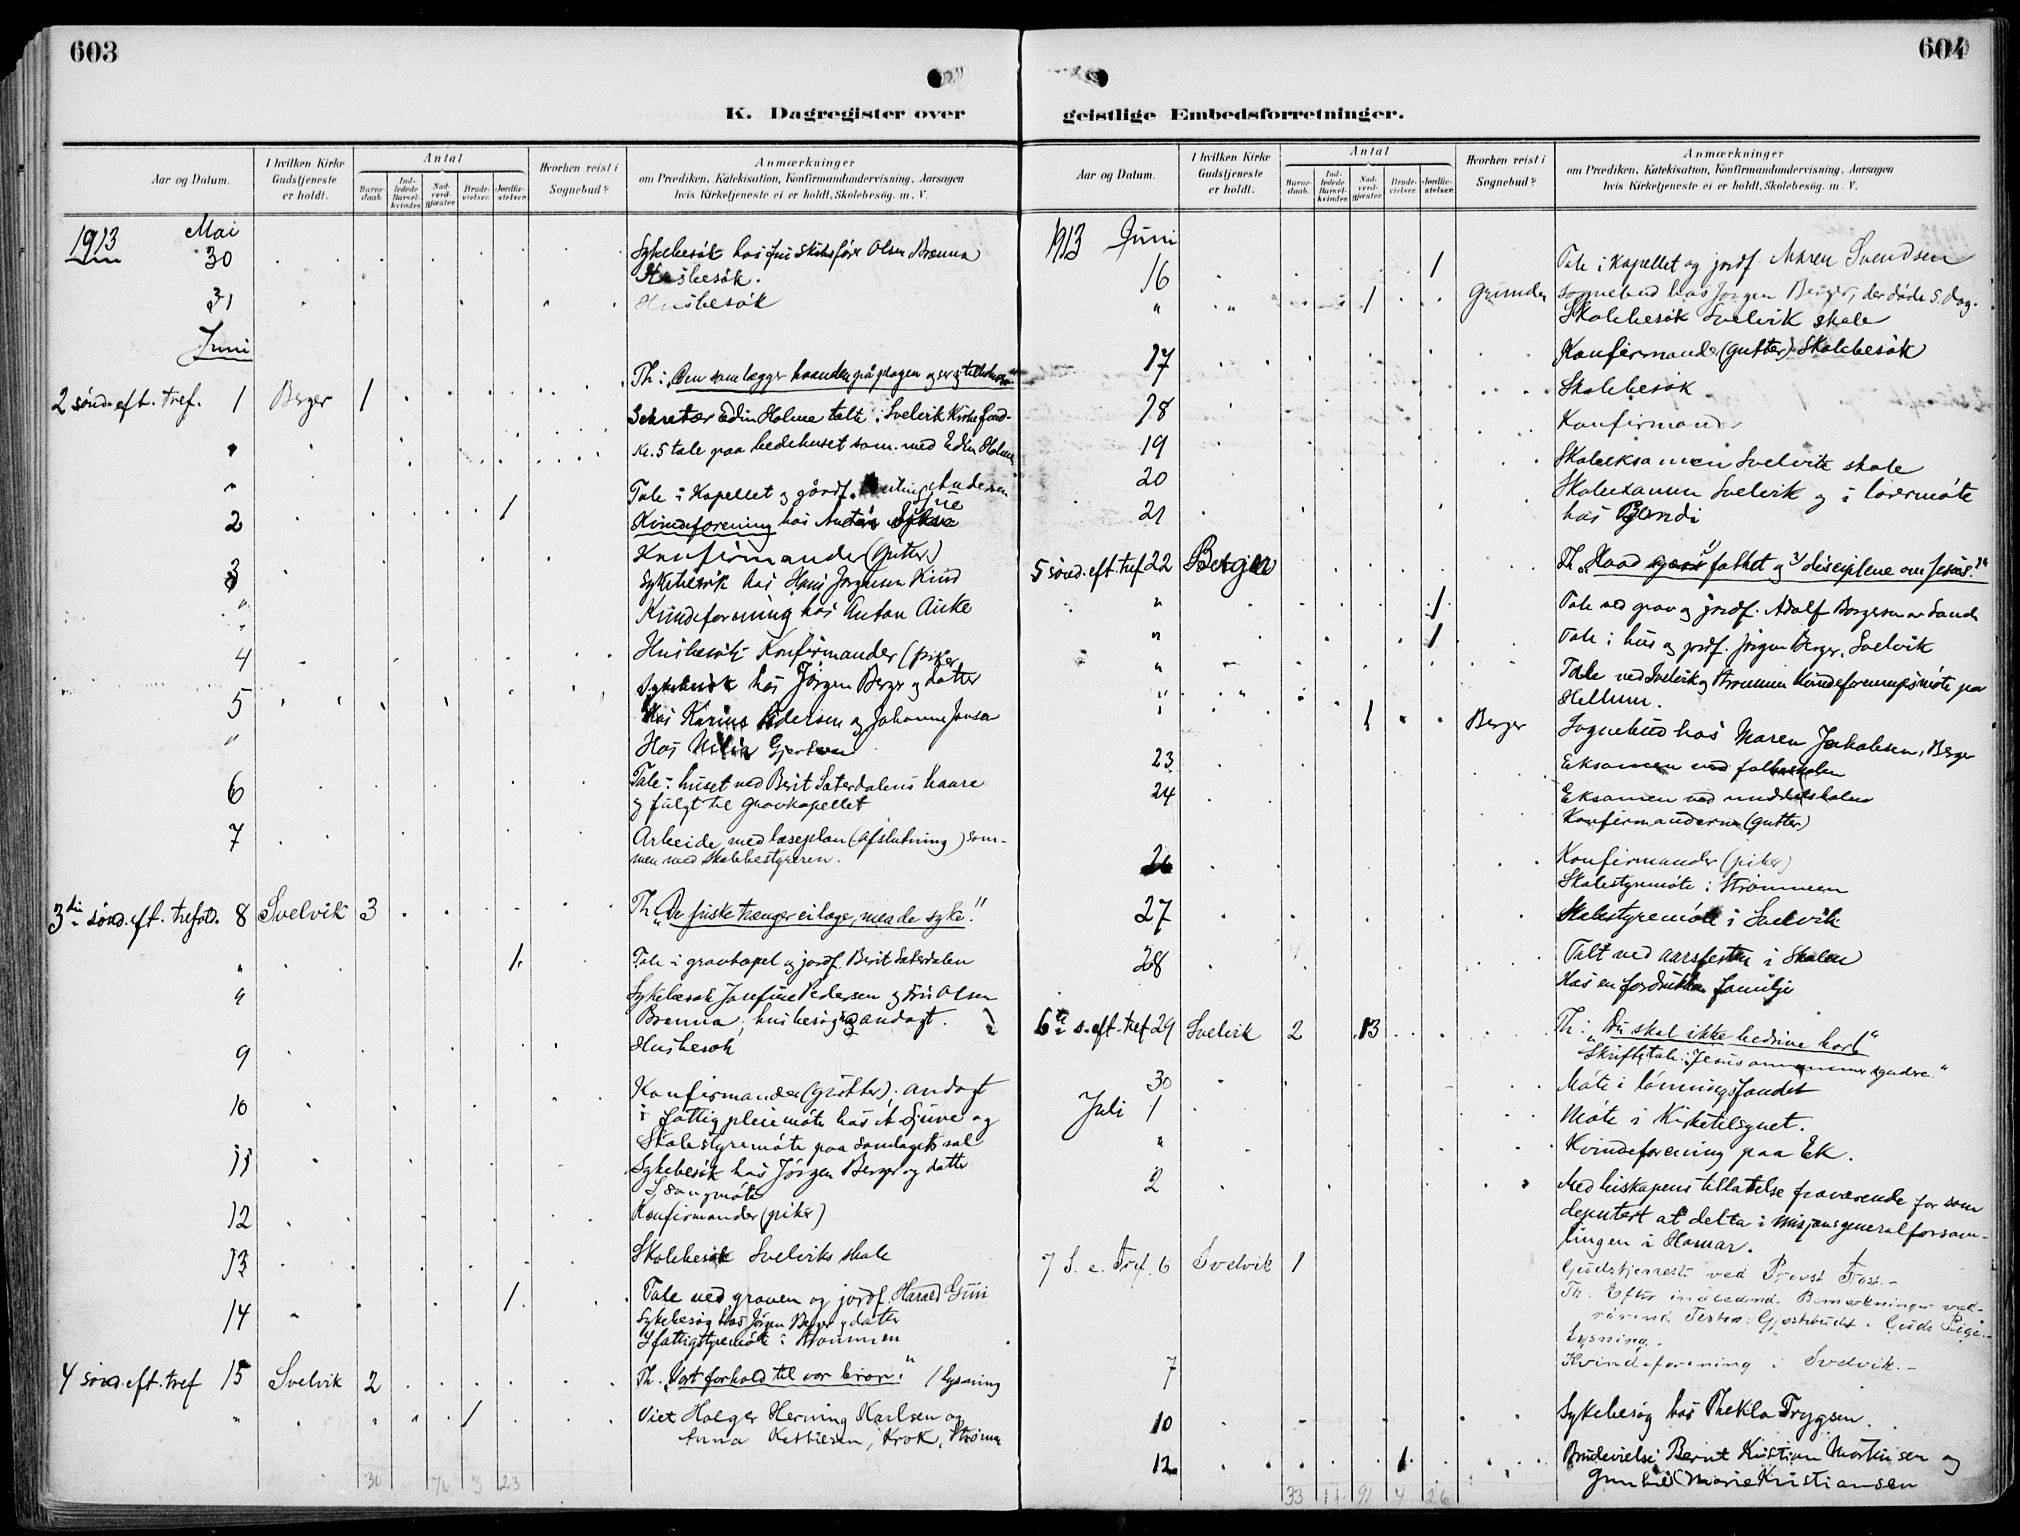 603
K. Dagregister over
Aar og Datum.
I hvilken Kirke Gudstjeneste er holdt.
Antal
Barnedaab.
Indledede Barselkvinder.
Nadverdgjæster.
Brudevielser.
Jordfæstelser.
Hvorhen reist i Sognebud?
Anmærkninger
om Prædiken, Katekisation, Konfirmandundervisning, Aarsagen
hvis Kirketjeneste ei er holdt, Skolebesøg. m. V.
1913 Mai
30 Sykebesøk hos fru Skibsfører Olsen Brenna
Husbesøk.
31 Husbesøk
Juni
2 sønd. eft. tref. 1 Berger 1 Th: "Den som lægger haanden på plogen og ser sig tilbake"
Sekretær Edin Holme talte i Svelvik Kirke
Kl. 5 tale paa bedehuset sam. med Edin Holme
" Tale i Kapellet og jordf. Andersen
2 1 Kvindeforening hos
3 Konfirmander (Gutter)
Sykebesøk hos Hans Jørgensen Kind
" Kvindeforening hos Anton Aicke
4 Husbesøk Konfirmander (piker)
5 Sykebesøk hos Jørgen Berger og datter
Hos Karius Pedersen og Johanne Jonsen
" Hos Gjertsen
6 Tale i huset ved Berit Sæterdalens baare
og fulgt til gravkapellet
7 Arbeide med læseplan (afslutning) sam-
men med skolebestyreren.
3die sønd. eft. trefold. 8 Svelvik 3 Th. "De friske trænger ei læge, men de syke."
" 1. Tale i gravkapel og jordf. Berit Sæterdalen
" Sykebesøk Josefine Pedersen og Fru Olsen
Brenna; husbesøg og andagt.
9 Husbesøk
10 Konfirmander (gutter); andagt
i fattigpleiemøte hos A Sjuve og
Skolestyremøte paa Sandagets sal
11 Sykebesøk hos Jørgen Berger og datter
12 Konfirmander (piker)
13 Skolebesøk Svelviks skole
14 1. Tale ved graven og jordf. Harald Gun
Sykebesøg hos Jørgen Berger og datter
I fattigstyremøte i Strømmen
4 sønd. eft. tref 15 Svelvik 2 Th. "Vort forhold til vor bror." / lysning
" 1 Viet Holger Herning Karlsen og
Anna Krok, Strømm
30 76 3 23
604
geistlige Embedsforretninger.
Aar og Datum.
I hvilken Kirke Gudstjeneste er holdt.
Antal
Barnedaab.
Indledede Barselkvinder.
Nadverdgjæster.
Brudevielser.
Jordfæstelser.
Hvorhen reist i Sognebud?
Anmærkninger
om Prædiken, Katekisation, Konfirmandundervisning, Aarsagen
hvis Kirketjeneste ei er holdt, Skolebesøg. m. V.
1913 Juni
16 1 Tale i Kapellet og jordf Maren Svendsen
" 1 Grunden Sognebud hos Jørgen Berger, der døde s. dag.
Skolebesøk Svelvik skole
17 Konfirmander (gutter) Skolebesøk
Skolebesøk
18 Konfirmander
19 Skoleeksamen Svelvik skole
20 Skoleexamen Svelvik og i lærermøte
21 hos
5 sønd. eft. tref 22 Berger Th. "Hvad folket og disciplene om Jesus."
" 1 Tale ved grav og jordf. Adolf Borgersen av Sande
" 1 Tale i hus og jordf. Jørgen Berger, Svelvik
" Tale ved Svelvik og Strømmen kvindeforeningsmøte paa
" Hellum.
1 Berger Sognebud hos Maren Jakobsen, Berger
23 Eksamen ved folkeskolen
24 Eksamen ved middelskolen
Konfirmanderne (gutter)
26 Konfirmander (piker)
Skolestyremøte i Strømmen
27 Skolestyremøte i Svelvik
28 Talt ved aarsfesten i Skolen
Hos en fordrukken familje
6te s. eft. tref 29 Svelvik 2 13 Th: "Du skal ikke bedrive hor"
Skriftetale: Jesus annammer syndere"
30 Møte i lønningsfondet
Juli 1 Møte i Kirketilsynet.
" Kvindeforening paa Ek.
2 Med biskopens tillatelse fraværende for som
deputert at delta i misjonsgeneralforsam-
lingen i Hamar.
7 S. e. Tref. 6 Svelvik 1 Gudstjeneste ved Provst
Th: Efter indledende Bemerkninger ved-
rørende Texten: Gjæstebudet i Guds Rige.-
Lysning.
7 Kvindeforening i Svelvik.-
10 Sykebesøg hos Thekla Trygsen.
12 1 Brudevielse Bernt Kristian Mortensen og
Gunhild Marie Kristiansen
33 11 91 4 26